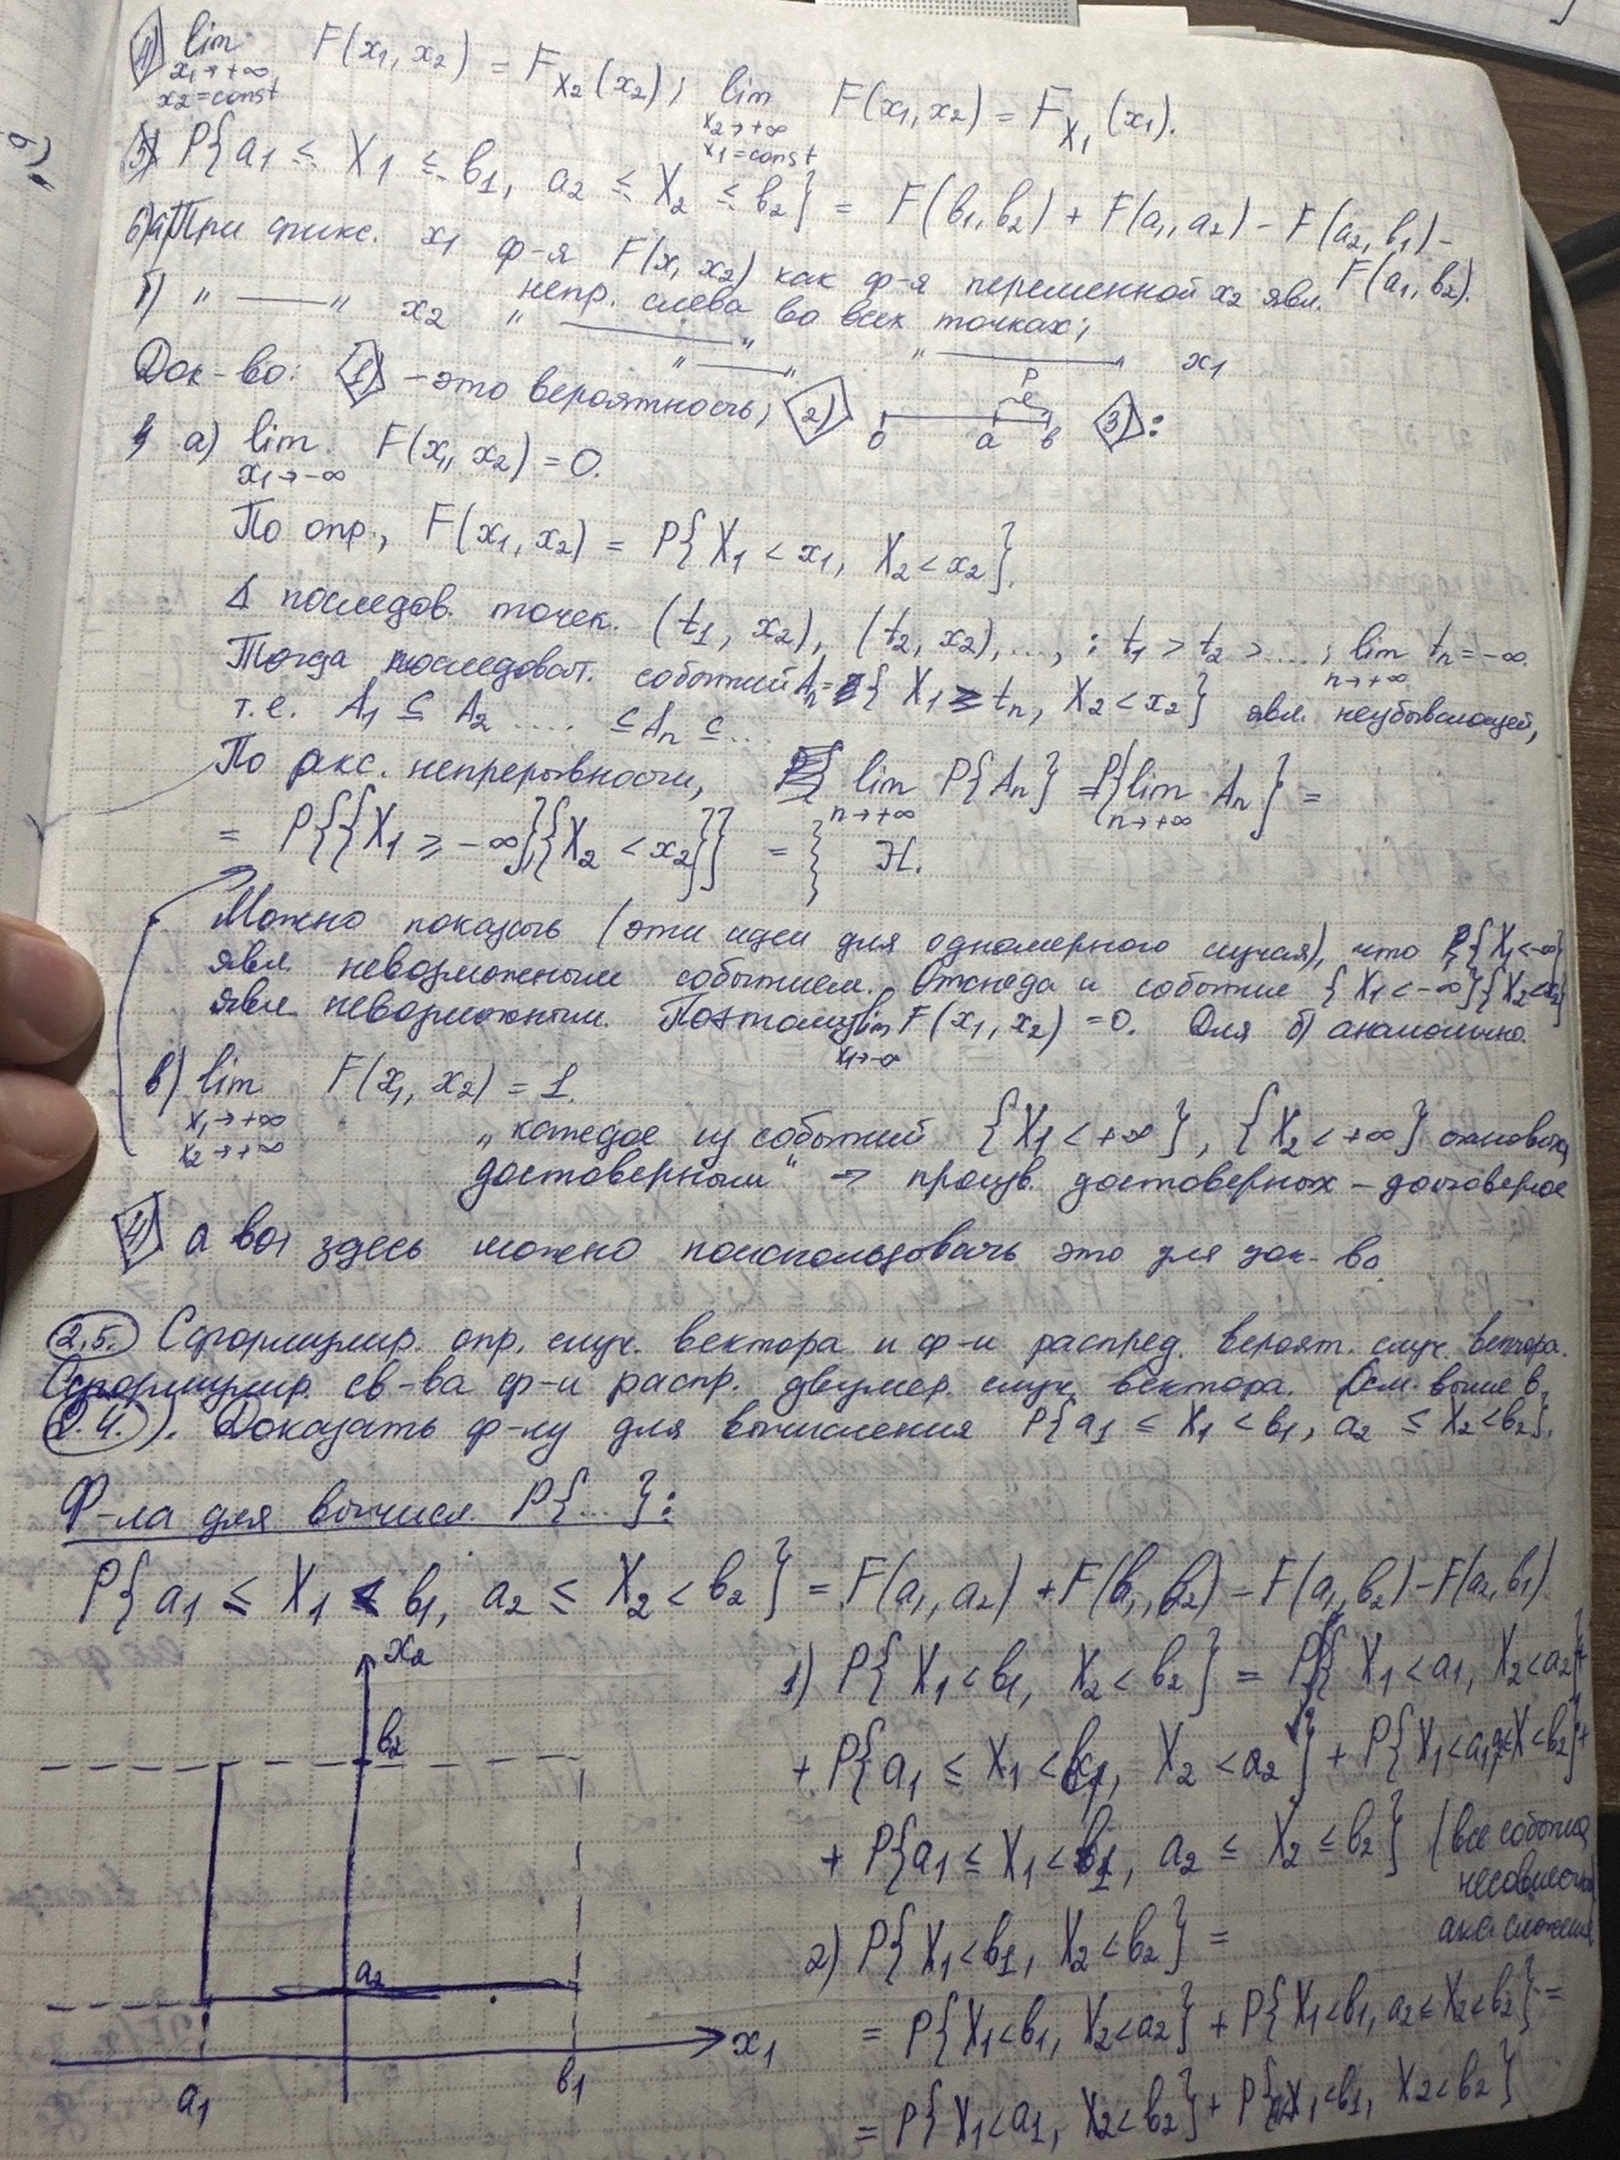 4) lim F(x1, x2) = F_X2 (x2); lim F(x1, x2) = F_X1 (x1).
x1→+∞, x2→+∞
x2=const x1=const
5) P{a1 ≤ X1 ≤ b1, a2 ≤ X2 ≤ b2} = F(b1, b2) + F(a1, a2) - F(a2, b1) -
F(a1, b2).
6) а) При фикс. x1 ф-я F(x1, x2) как ф-я переменной x2 явл.
непр. слева во всех точках;
б) " —— " x2 " —— " " —— " x1
" —— "
Док-во: 1) - это вероятность; 2) 3):
P
0 a b
а) lim F(x1, x2) = 0.
x1→-∞
По опр., F(x1, x2) = P{X1 < x1, X2 < x2}.
Δ последов. точек. (t1, x2), (t2, x2), ..., : t1 > t2 > ...; lim tn = -∞.
n→+∞
Тогда последоват. событий An = { X1 ≥ tn, X2 < x2} явл. неубывающей,
т.е. A1 ⊆ A2 .... ⊆ An ⊆ ...
По акс. непрерывности, lim P{An} = P{lim An} =
n→+∞ n→+∞
= P{{X1 ≥ -∞}{X2 < x2}} = }
Можно показать (эти идеи для одномерного случая), что {X1<-∞}
явл. невозможным событием. Отсюда и событие {X1<-∞}{X2<x2}
явл. невозможным. Поэтому lim F(x1, x2) = 0. Для б) аналогично.
x1→-∞
в) lim F(x1, x2) = 1.
x1→+∞
x2→+∞
"каждое из событий {X1 < +∞}, {X2 < +∞}
достоверным" ⇒ произв. достоверных - достоверное
4) а вот здесь можно поиспользовать это для док-ва.
2.5. Сформулир. опр. случ. вектора и ф-и распред. вероят. случ. вектора.
Сформулир. св-ва ф-и распр. двумер. случ. вектора. (см. выше в
2.4.). Доказать ф-лу для вычисления P{a1 ≤ X1 < b1, a2 ≤ X2 < b2}.
Ф-ла для вычисл. P{...}:
P{a1 ≤ X1 < b1, a2 ≤ X2 < b2} = F(a1, a2) + F(b1, b2) - F(a1, b2) - F(a2, b1).
x2
b2
a2
x1
a1
b1
1) P{X1 < b1, X2 < b2} = P{X1 < a1, X2 < a2} +
+ P{a1 ≤ X1 < b1, X2 < a2} + P{X1 < a1, a2 ≤ X < b2} +
+ P{a1 ≤ X1 < b1, a2 ≤ X2 ≤ b2} (все события
несовместны
акс. сложения
2) P{X1 < b1, X2 < b2} =
= P{X1 < b1, X2 < a2} + P{X1 < b1, a2 ≤ X2 < b2} =
= P{X1 < a1, X2 < b2} + P{a1 ≤ X1 < b1, X2 < b2}